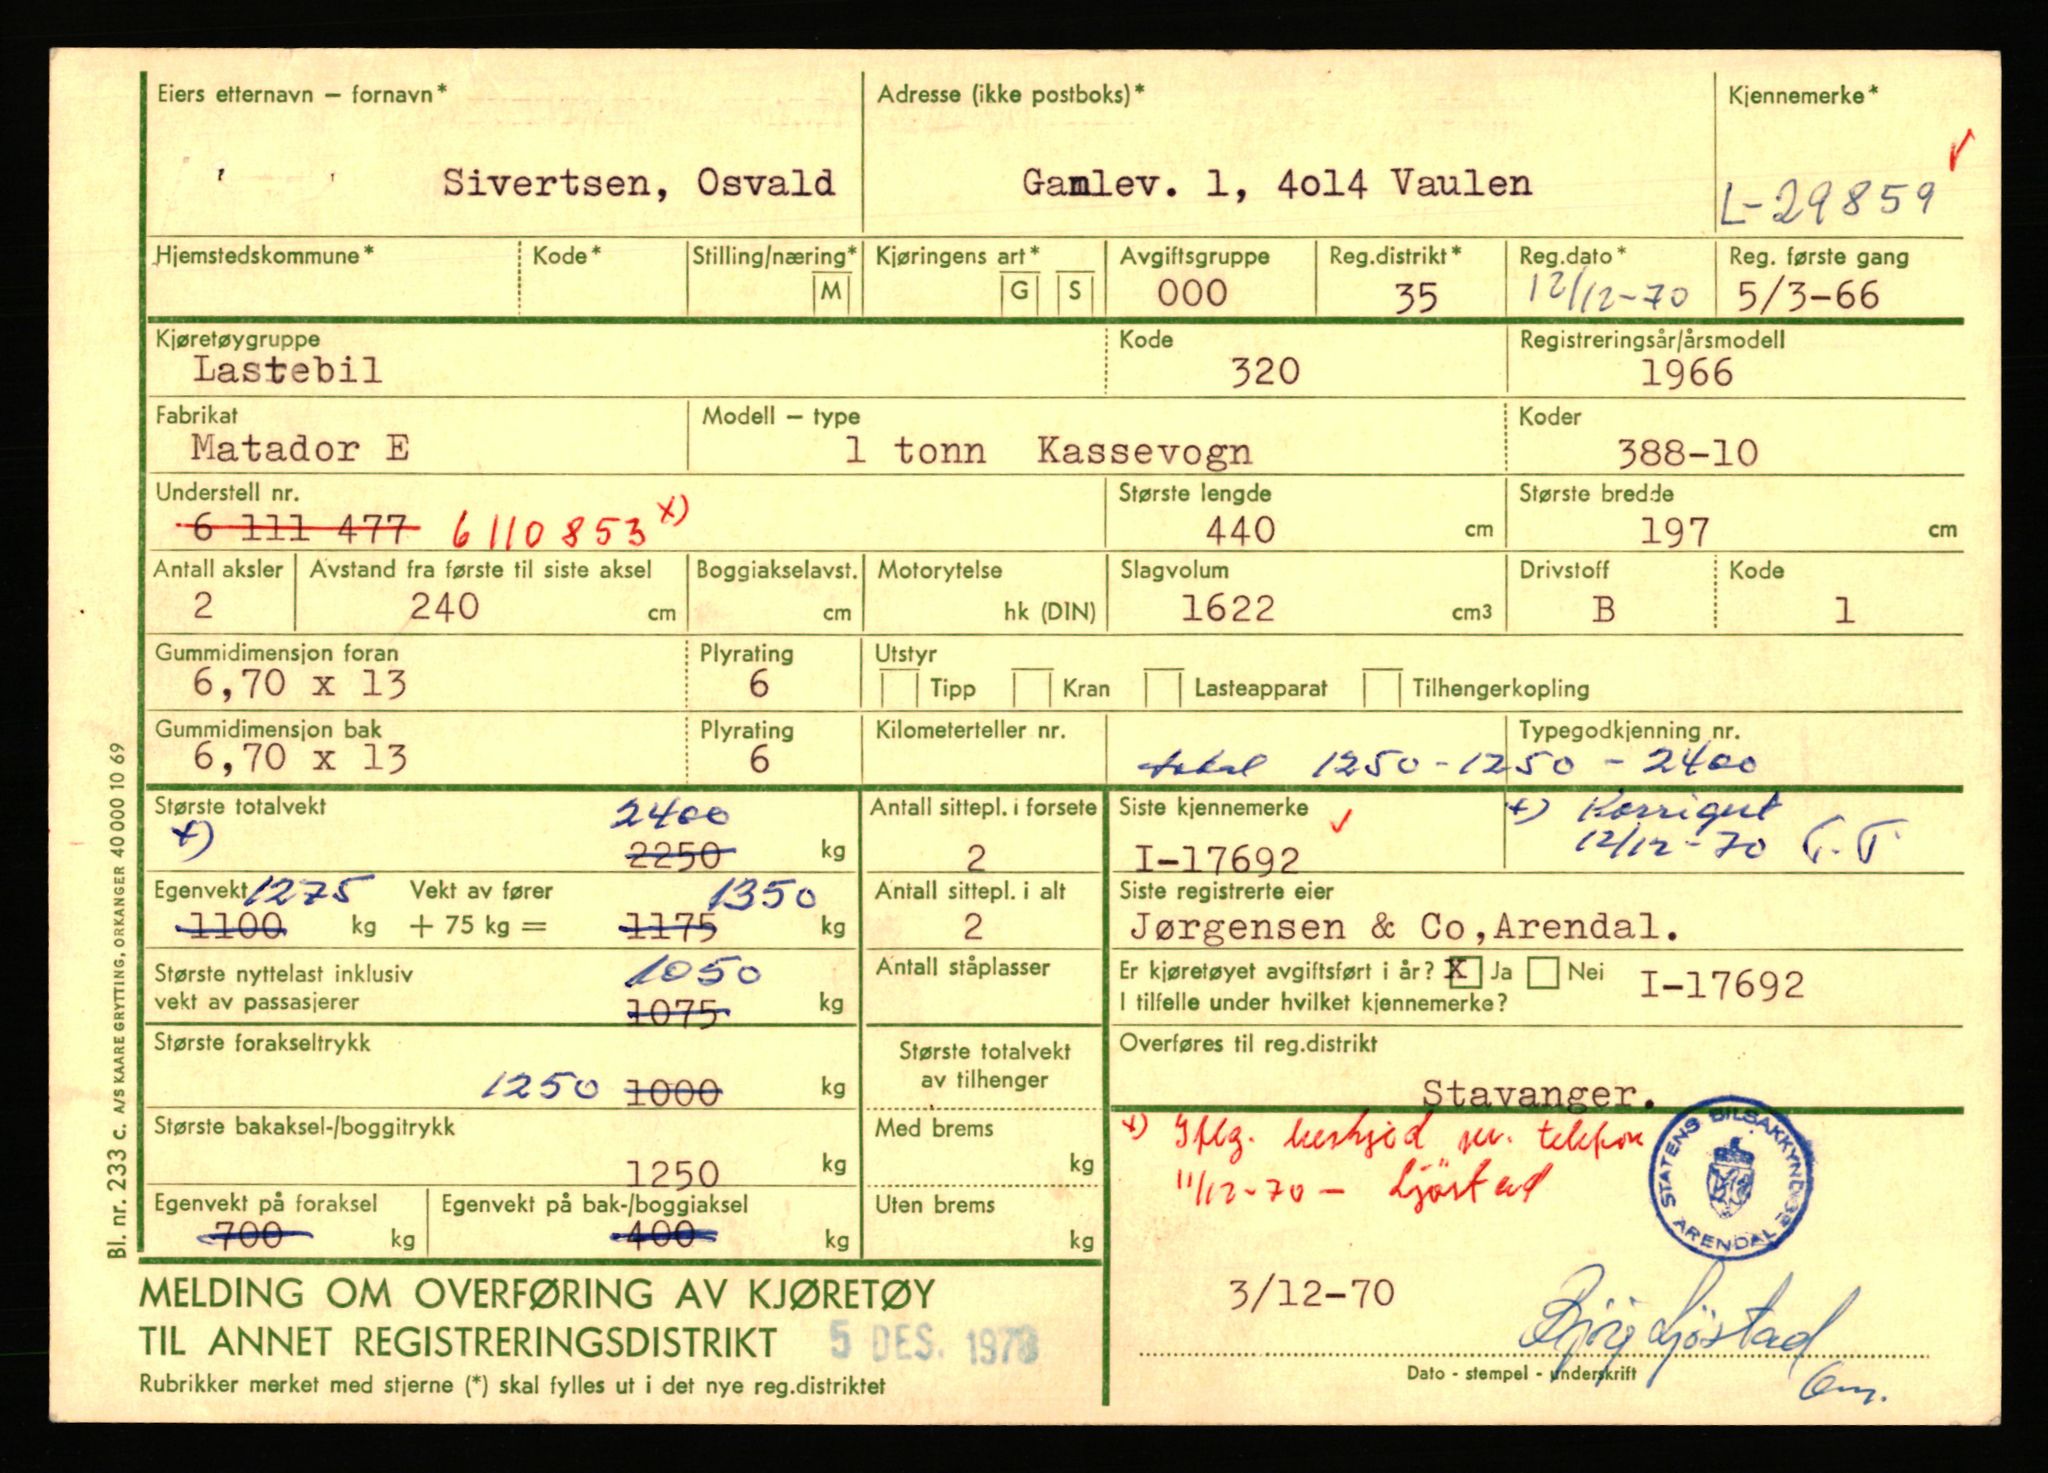 Eiers etternavn – fornavn* Adresse (ikke postboks)* Kjennemerke*
Sivertsen, Osvald Gamlev. 1, 4o14 Vaulen L-29859
Hjemstedskommune* Kode* Stilling/næring* Kjøringens art* Avgiftsgruppe Reg.distrikt* Reg.dato* Reg. første gang
M G S 000 35 12/12-70 5/3-66
Kjøretøygruppe Kode Registreringsår/årsmodell
Lastebil 320 1966
Fabrikat Modell – type Koder
Matador E 1 tonn Kassevogn 388-10
Understell nr. Største lengde Største bredde
6 111 477 6110853 x) 440 cm 197 cm
Antall aksler Avstand fra første til siste aksel Boggiakselavst. Motorytelse Slagvolum Drivstoff Kode
2 240 cm cm hk (DIN) 1622 cm3 B 1
Gummidimensjon foran Plyrating Utstyr
6,70 x 13 6 Tipp Kran Lasteapparat Tilhengerkopling
Gummidimensjon bak Plyrating Kilometerteller nr. Typegodkjenning nr.
6,70 x 13 6 total 1250-1250-2400
Største totalvekt 2400 Antall sittepl. i forsete Siste kjennemerke x) Korrigert
x) 2250 kg 2 I-17692 12/12-70 T.T.
Egenvekt 1275 Vekt av fører 1350 Antall sittepl. i alt Siste registrerte eier
1100 kg + 75 kg = 1175 kg 2 Jørgensen & Co,Arendal.
Største nyttelast inklusiv 1050 Antall ståplasser Er kjøretøyet avgiftsført i år? X Ja Nei I-17692
vekt av passasjerer 1075 kg I tilfelle under hvilket kjennemerke?
Største forakseltrykk Største totalvekt Overføres til reg.distrikt
1250 1000 kg av tilhenger Stavanger.
Største bakaksel-/boggitrykk Med brems x) Iflg. beskjed pr. telefon
1250 kg kg 11/12-70 - Ljøstad
Egenvekt på foraksel Egenvekt på bak-/boggiaksel Uten brems
700 kg 400 kg kg
STATENS BILSAKKYNDIGE ARENDAL
MELDING OM OVERFØRING AV KJØRETØY 3/12-70
TIL ANNET REGISTRERINGSDISTRIKT 5 DES. 1970 Ljøstad
Rubrikker merket med stjerne (*) skal fylles ut i det nye reg.distriktet Dato - stempel - underskrift
Bl. nr. 233 C. A/S KAARE GRYTTING, ORKANGER 40 000 10 69